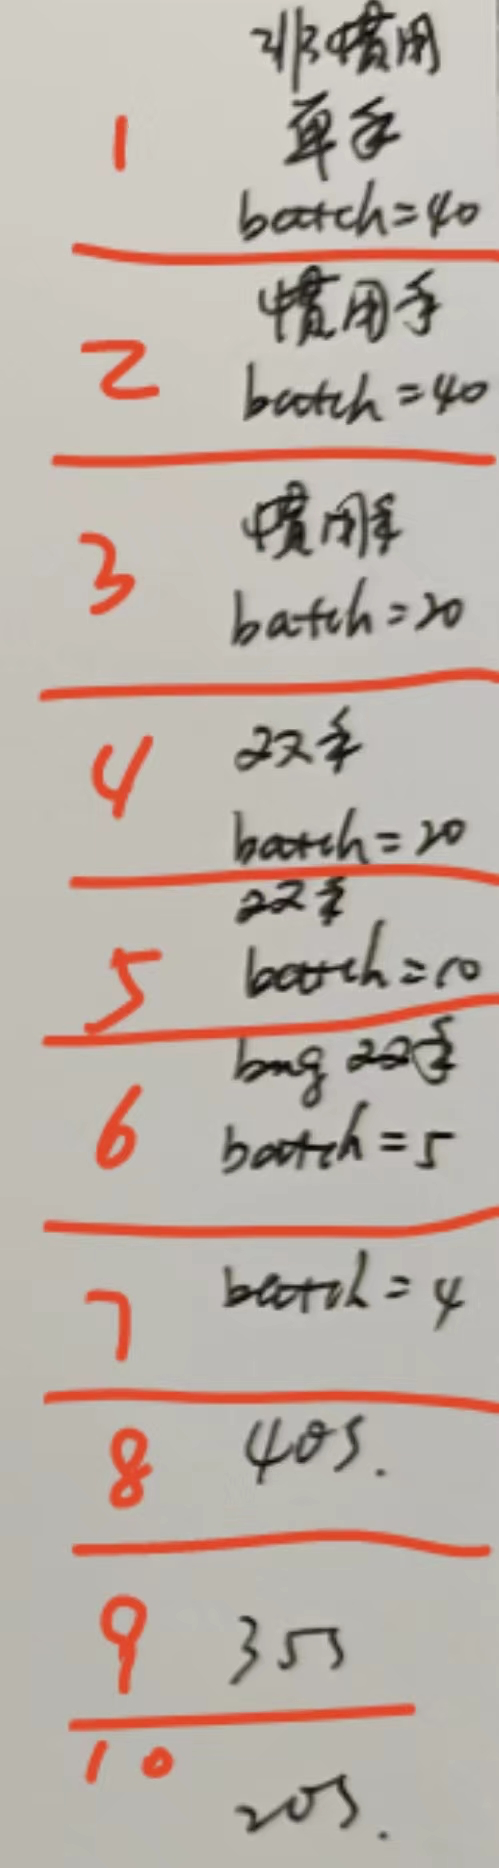 1
非惯用
单手
batch=40
2
惯用手
batch=40
3
惯用手
batch=20
4
双手
batch=20
5
双手
batch=10
6
bug 双手
batch=5
7
batch=4
8
40s.
9
35s
10
20s.